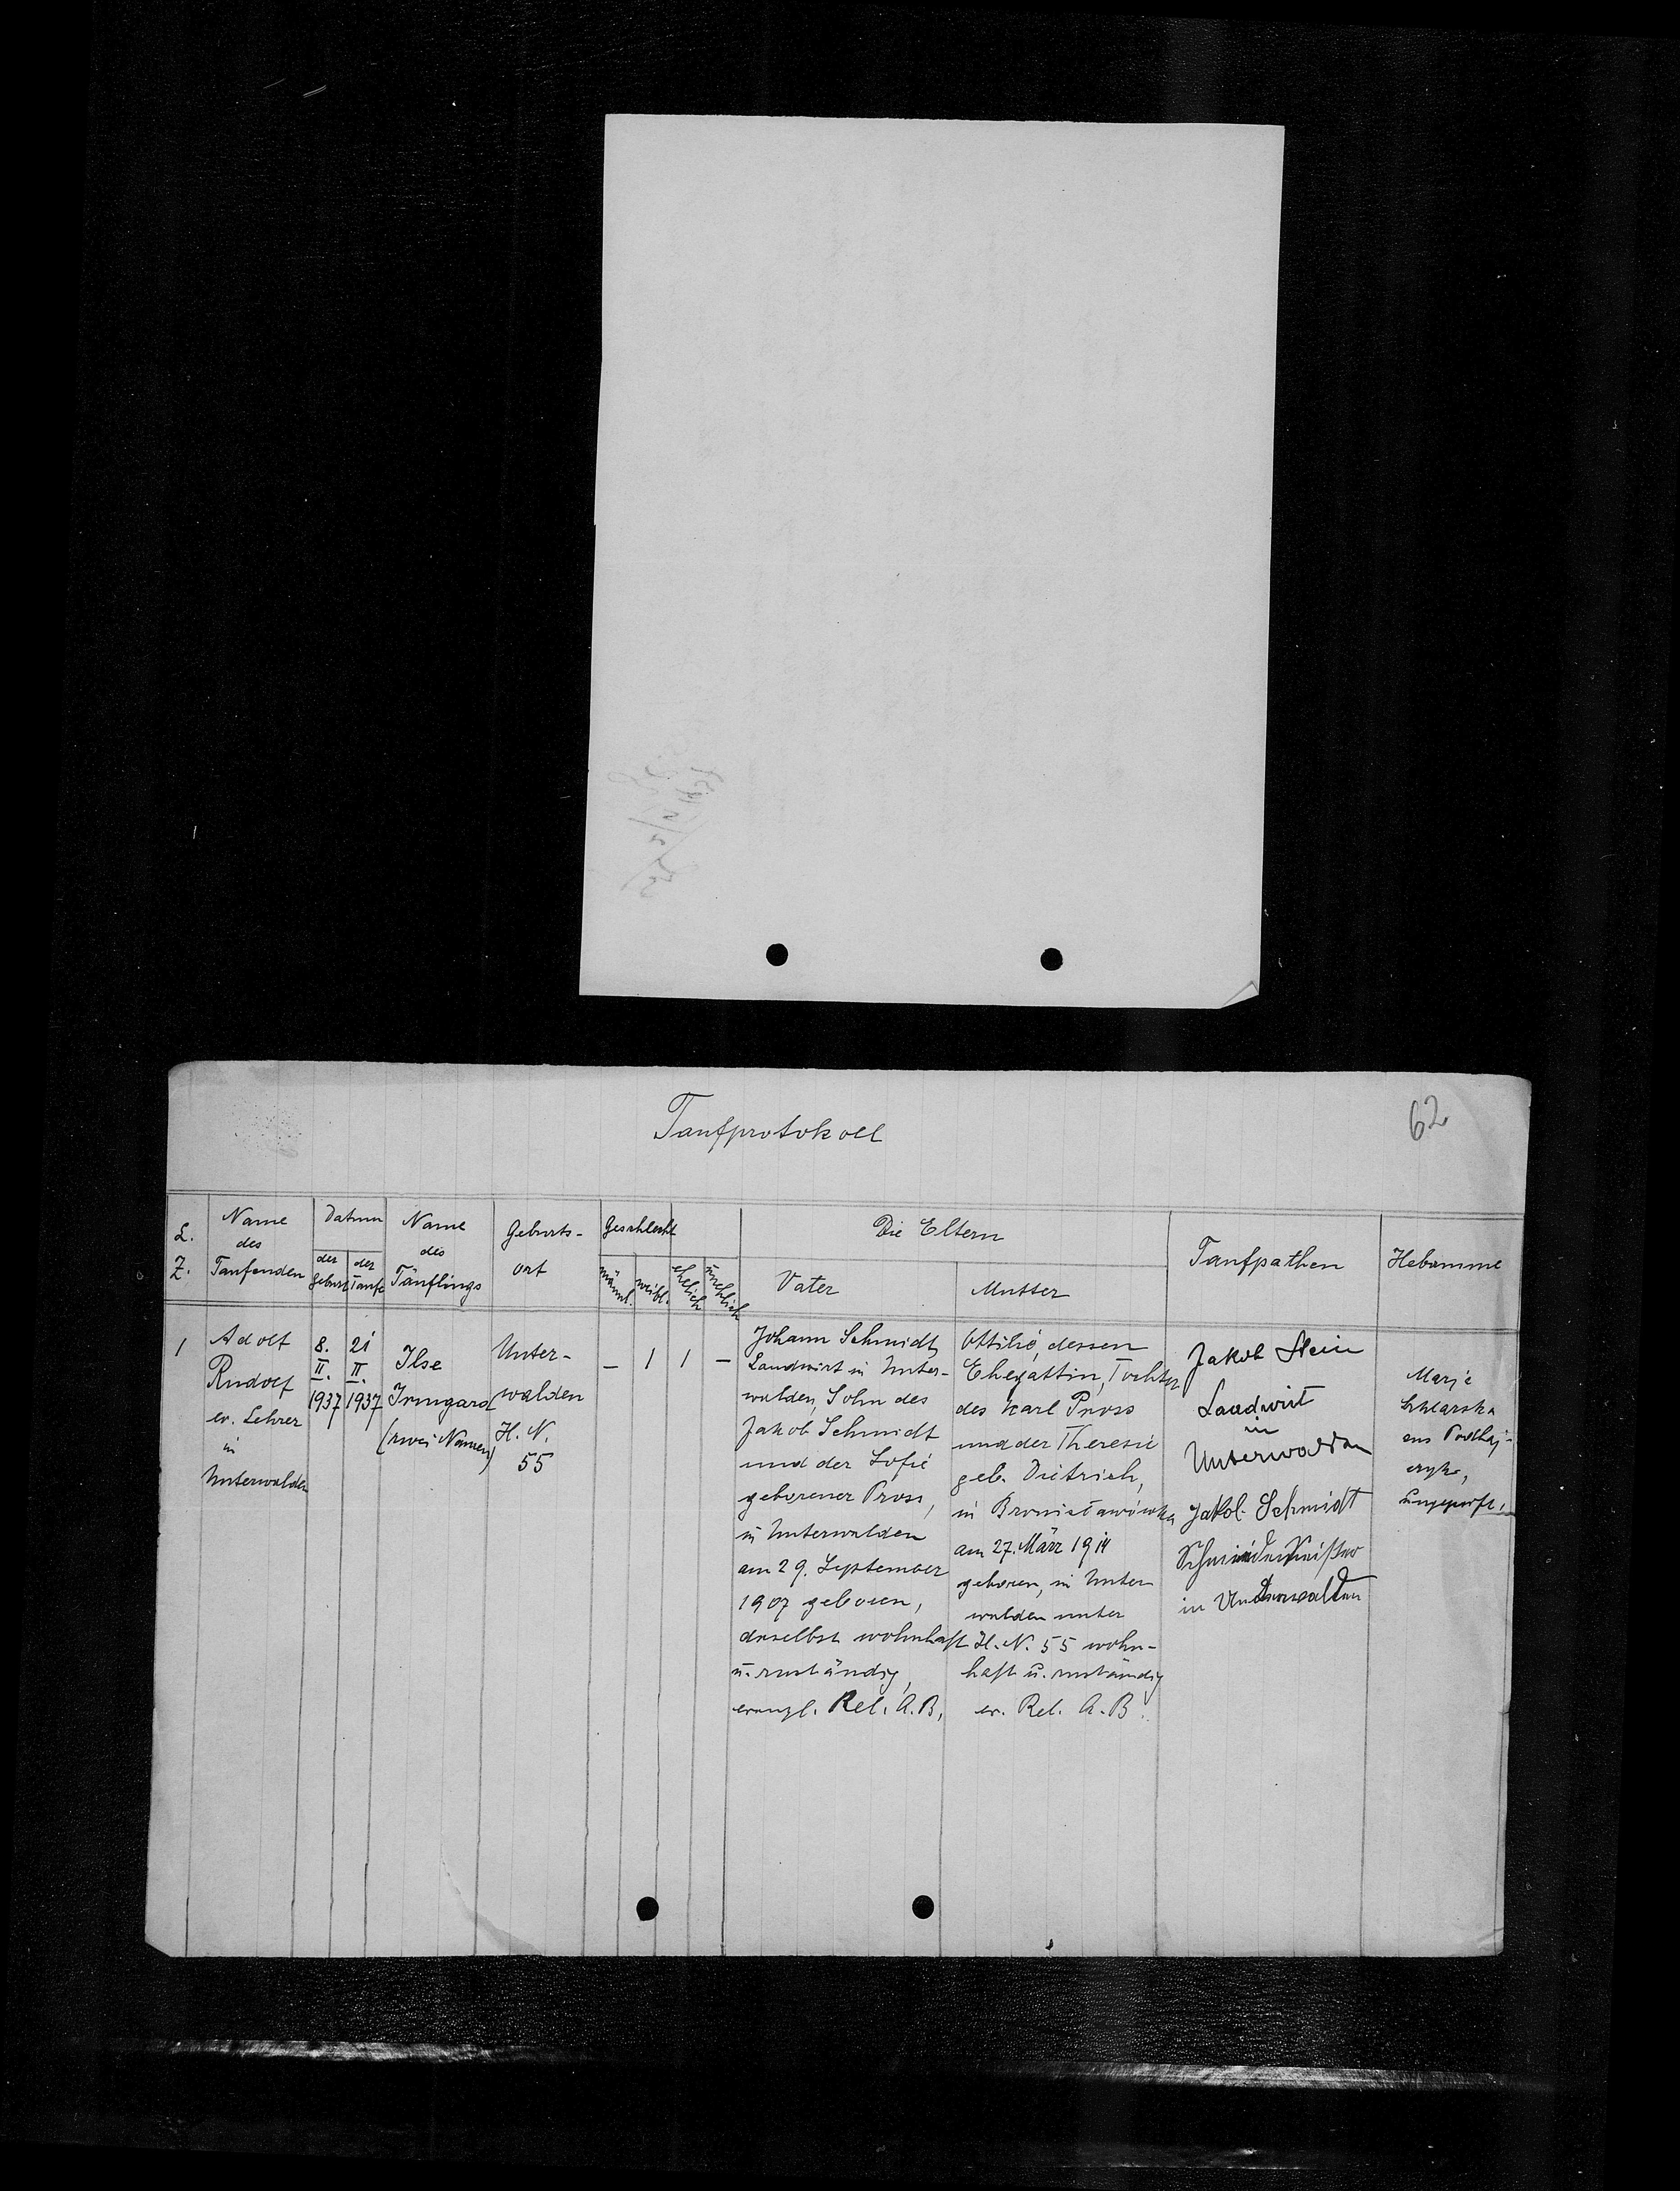 Taufprotokoll
62
L.
Z.
Name
des
Taufenden
Datum
der
Geburt
der
Taufe
Name
des
Täuflings
Geburts-
ort
Geschlecht
männl.
weibl.
ehelich
unehelich
Die Eltern
Vater
Mutter
Taufpathen
Hebamme
1
Adolf
Rudolf
ev. Lehrer
in
Unterwalden
8.
II.
1937
21
II.
1937
Ilse
Irmgard
(zwei Namen)
Unter-
walden
H. N.
55
–
1
1
–
Johann Schmidt,
Landwirt in Unter-
walden, Sohn des
Jakob Schmidt
und der Sofie
geborener Pross,
in Unterwalden
am 29. September
1907 geboren,
daselbst wohnhaft
u. zuständig,
evangl. Rel. A.B.
Ottilie, dessen
Ehegattin, Tochter
des Karl Pross
und der Theresie
geb. Dietrich,
in Bronisławówka
am 27. März 1914
geboren, in Unter
walden unter
H. N. 55 wohn-
haft u. zuständig
ev. Rel. A. B.
Jakob Stein
Landwirt
in
Unterwalden
Jakob Schmidt
Schmiedemeister
in Unterwalden
Marje
aus Podhaj-
czyke,
ungeprüft.